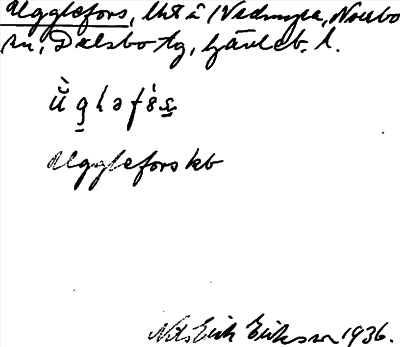 Ugglefors, lht å Vedmyra, Norrbo
sn, Dalsbo tg, Gävleb. l.
Ugglefors kb
Nils Erik Eriksson 1936.